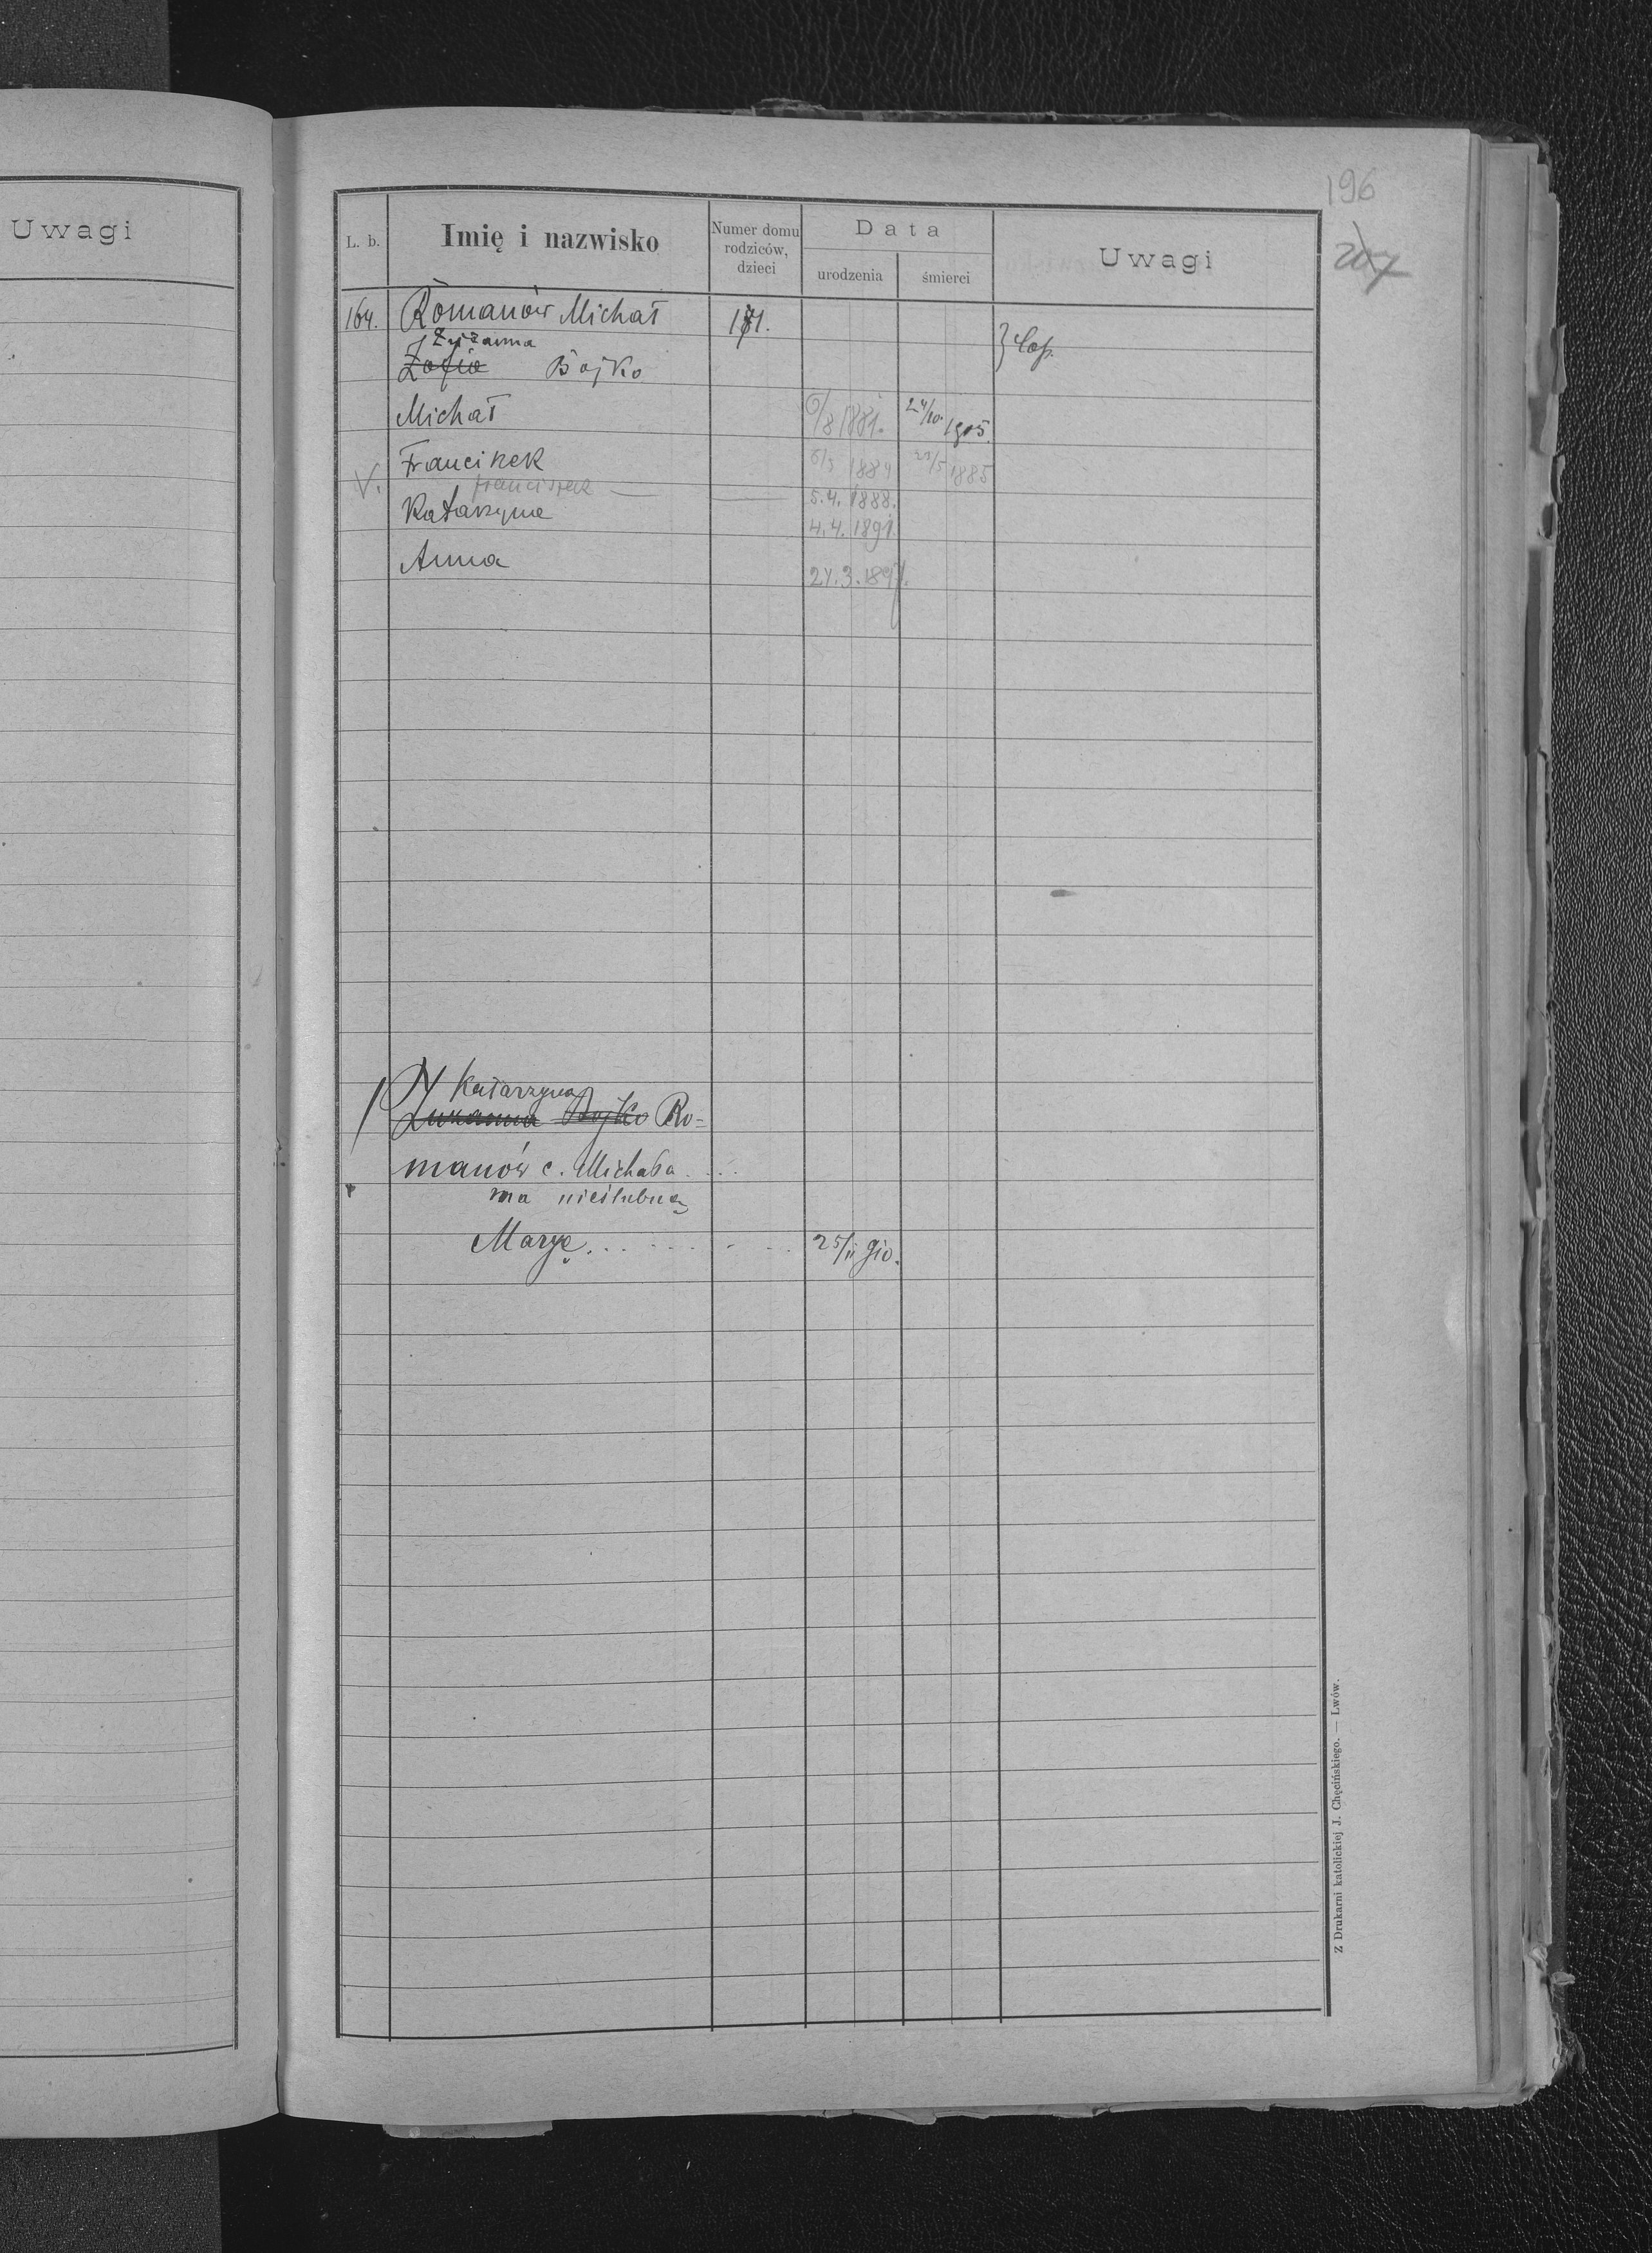 Uwagi
196
207
L. b.
Imię i nazwisko
Numer domu
rodziców,
dzieci
Data
urodzenia
śmierci
Uwagi
164. Romanów Michał
Zuzanna
Zofia Bojko
Michał 6/8 1881. 24/10. 1905.
Franciszek 1884 1885
V. Franciszek 5.4. 1888.
Katarzyna 4.4. 1891
Anna 27.3.1897.
Katarzyna
Zuzanna Bojko Ro=
manów c. Michała . . . .
ma nieślubną
Maryę . . . . . . . . 25/II 910.
Z Drukarni katolickiej J. Chęcińskiego. — Lwów.